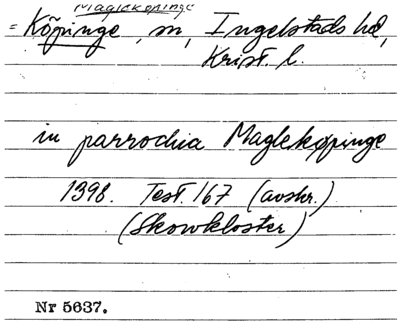 Maglekøpinge
= Köpinge, sn, Ingelstads hd,
Krist. l.
in parrochia Magleköpinge
1398. Test. 167 (avskr.)
(Skowkloster)
Nr 5637.